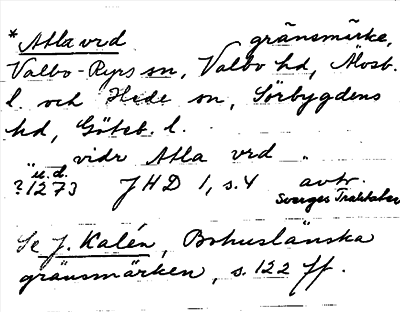 * Atla vrd gränsmärke,
Valbo-Ryrs sn, Valbo hd, Älvsb.
l. och Hede sn, Sörbygdens
hd, Göteb. l.
vidr Atla vrd
"u.d.
?1273 JHD 1, s.4 avtr.
Sveriges Traktater
Se J. Kalén, Bohuslänska
gränsmärken, s. 122 ff.